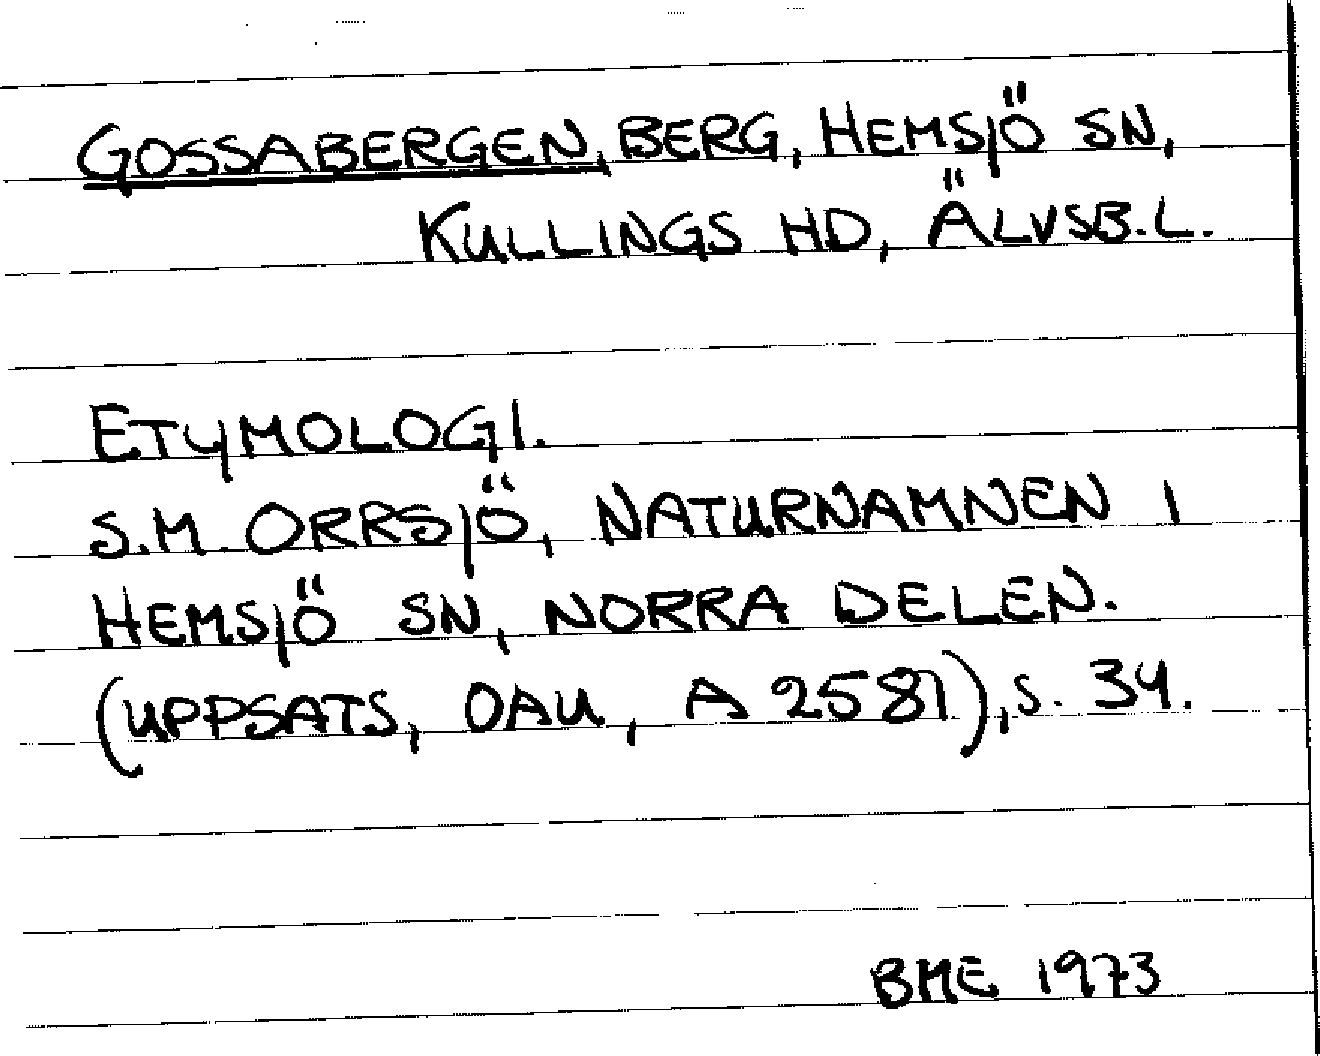 GOSSABERGEN, BERG, HEMSJÖ SN,
KULLINGS HD, ÄLVSB.L.
ETYMOLOGI.
S.M. ORRSJÖ, NATURNAMNEN I
HEMSJÖ SN, NORRA DELEN.
(UPPSATS, OAU, A 2581), S. 34.
BME 1973